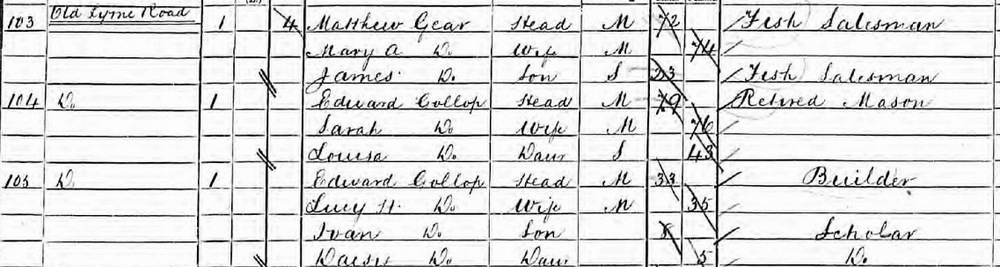 103 Old Lyme Road 1 4 Matthew Gear Head M 72 Fish Salesman
Mary A Do. Wife M 74
James Do. Son S 23 Fish Salesman
104 Do 1 Edward Gollop Head M 79 Retired Mason
Sarah Do. Wife M 76
Louisa Do. Daur S 43
105 Do 1 Edward Gollop Head M 33 Builder
Lucy H. Do. Wife M 35
Ivan Do. Son 8 Scholar
Daisy Do. Daur 5 Do.